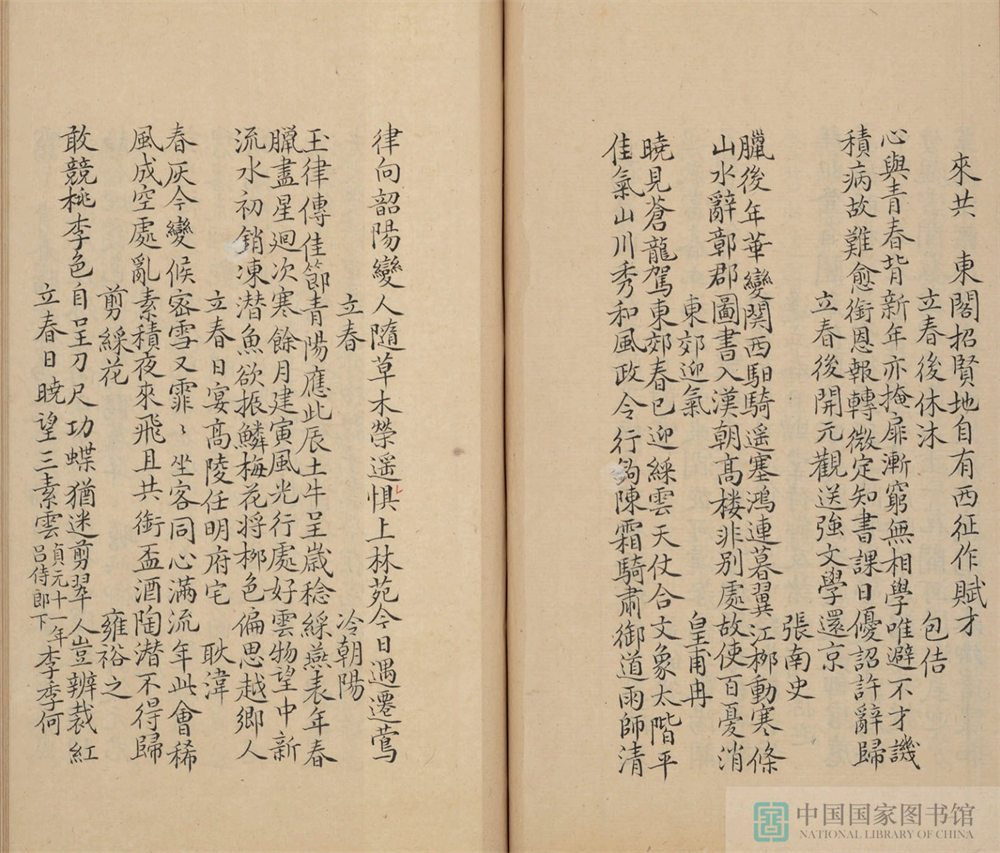 來共　東閣招賢地自有西征作賦才
立春後休沐　包佶
心與青春背新年亦掩扉漸窮無相學唯避不才譏
積病故難愈銜恩報轉微定知書課日優認許辭歸
立春後開元觀送強文學還京
張南史
臘後年華變関西馹騎遥塞鴻連暮翼江栁動寒條
山水辭鄣郡圖書入漢朝髙楼非别處故使百憂消
東郊迎氣　皇甫冉
曉見蒼龍駕東郊春已迎綵雲天仗合文象太階平
佳氣山川秀和風政令行鈎陳霜騎肅御道雨師清
律向韶陽變人隨草木榮遥惧上林苑今日遇遷鶯
立春　冷朝陽
玉律傳佳節青陽應此辰土牛呈歲稔綵燕表年春
臘盡星廻次寒餘月建寅風光行處好雲物望中新
流水初銷凍潛魚欲振鱗梅花将栁色偏思越鄉人
立春日宴髙陵任明府宅　耿湋
春灰今變候密雪又霏〻坐客同心滿流年此會稀
風成空處亂素積夜來飛且共銜盃酒陶潛不得歸
剪綵花　雍裕之
敢競桃李色自呈刀尺功蝶猶迷剪翠人豈辨裁紅
立春日曉望三素雲貞元十一年吕侍郎下李季何
中国国家图书馆
NATIONAL LIBRARY OF CHINA